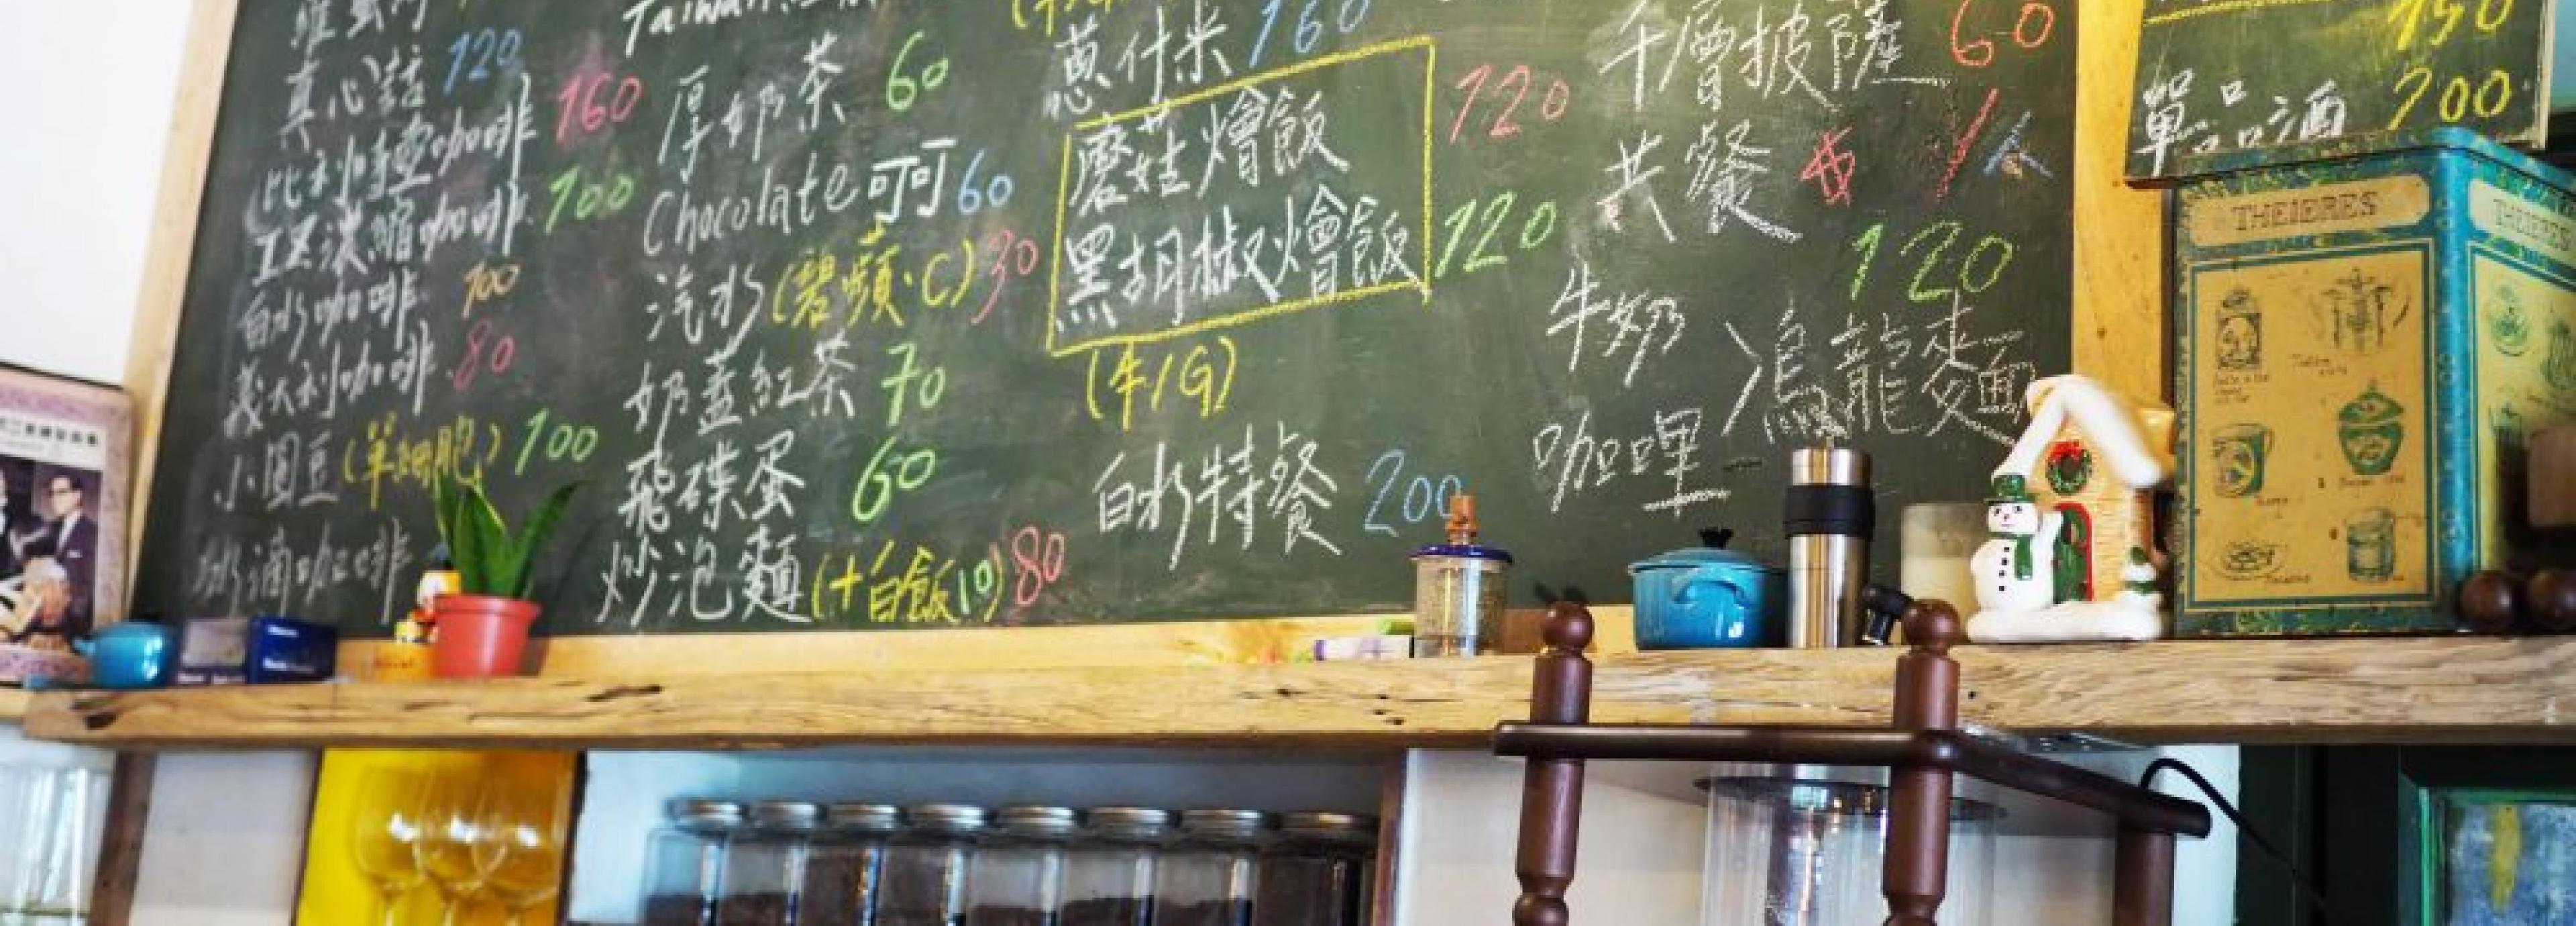 真心話 120
比利時壺咖啡 160
工夫濃縮咖啡 100
白水咖啡 100
義大利咖啡 80
小圓豆(單細胞) 100
冰滴咖啡
Taiwan
厚奶茶 60
Chocolate可可 60
汽水(碧蘋.C) 30
奶蓋紅茶 70
飛碟蛋 60
炒泡麵(+白飯10) 80
蔥付米 160
磨菇燴飯 120
黑胡椒燴飯 120
(牛/G)
白水特餐 200
千層披薩 60
共餐 $ /人
120
牛奶
咖哩
烏龍麵
150
單品酒 200
THEIERES